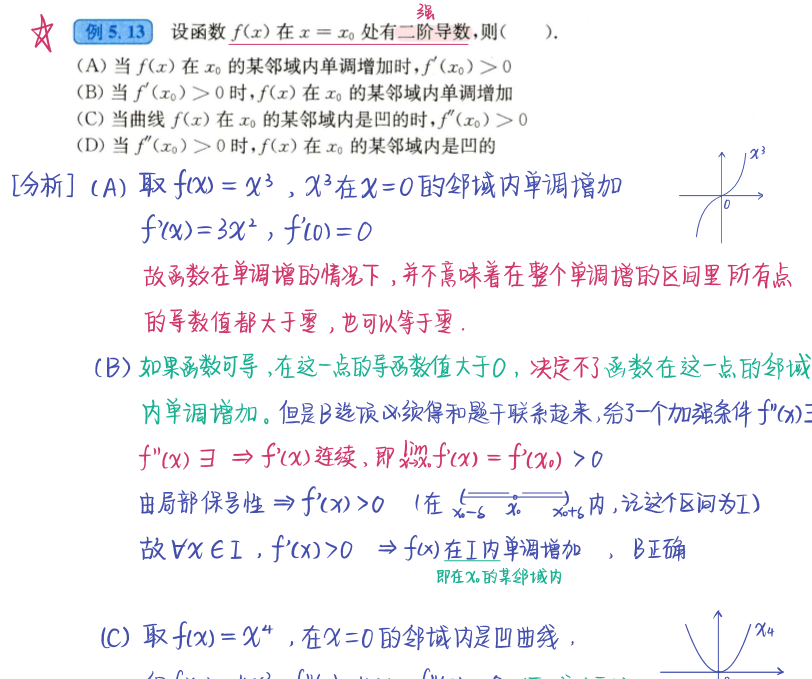 强
例 5.13 设函数 f(x) 在 x = x₀ 处有二阶导数,则( ).
(A) 当 f(x) 在 x₀ 的某邻域内单调增加时, f′(x₀) > 0
(B) 当 f′(x₀) > 0 时, f(x) 在 x₀ 的某邻域内单调增加
(C) 当曲线 f(x) 在 x₀ 的某邻域内是凹的时, f″(x₀) > 0
(D) 当 f″(x₀) > 0 时, f(x) 在 x₀ 的某邻域内是凹的
[分析] (A) 取 f(x) = x³ , x³在 x=0 的邻域内单调增加
x³
0
f'(x)=3x² , f'(0)=0
故函数在单调增的情况下,并不意味着在整个单调增的区间里所有点
的导数值都大于零,也可以等于零.
(B) 如果函数可导,在这一点的导函数值大于0,决定不了函数在这一点的邻域
内单调增加。但是B选项必须得和题干联系起来,给了一个加强条件 f"(x)∃
f"(x) ∃ ⇒ f'(x) 连续, 即 lim x→x₀ f'(x) = f'(x₀) > 0
由局部保号性 ⇒ f'(x)>0 (在 x₀-δ x₀ x₀+δ 内,记这个区间为I)
故 ∀x∈I , f'(x)>0 ⇒ f(x) 在I内单调增加 , B正确
即在x₀的某邻域内
(C) 取 f(x) = x⁴ , 在x=0的邻域内是凹曲线 ,
x4